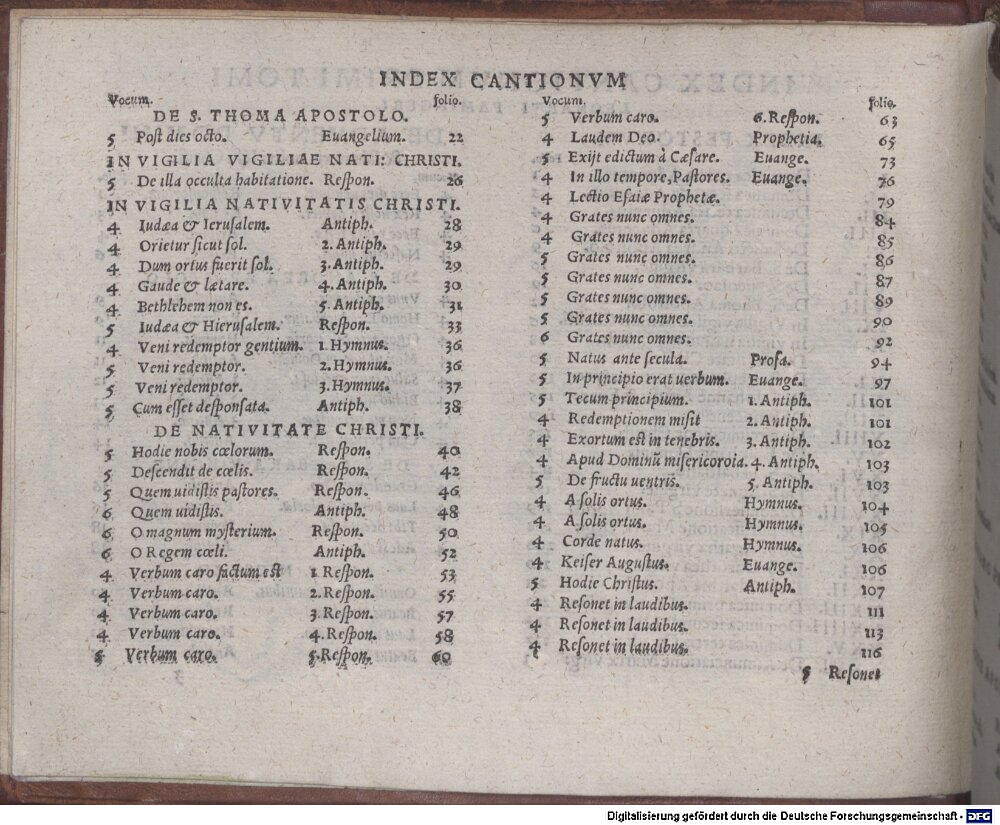 INDEX CANTIONVM
Vocum. folio.
DE S. THOMA APOSTOLO.
5 Poſt dies octo. Euangelium. 22
IN VIGILIA VIGILIAE NATI: CHRISTI.
5 De illa occulta habitatione. Reſpon. 26
IN VIGILIA NATIVITATIS CHRISTI.
4 Iudæa & Ieruſalem. Antiph. 28
4 Orietur ſicut ſol. 2. Antiph. 29
4 Dum ortus fuerit ſol. 3. Antiph. 29
4 Gaude & lætare. 4. Antiph. 30
4 Bethlehem non es. 5. Antiph. 31
5 Iudæa & Hieruſalem. Reſpon. 33
4 Veni redemptor gentium. 1. Hymnus. 36
5 Veni redemptor. 2. Hymnus. 36
5 Veni redemptor. 3. Hymnus. 37
5 Cum eſſet deſponſata. Antiph. 38
DE NATIVITATE CHRISTI.
5 Hodie nobis cœlorum. Reſpon. 40
5 Deſcendit de cœlis. Reſpon. 42
5 Quem uidiſtis paſtores. Reſpon. 46
6 Quem uidiſtis. Antiph. 48
6 O magnum myſterium. Reſpon. 50
6 O Regem cœli. Antiph. 52
4 Verbum caro factum eſt 1. Reſpon. 53
4 Verbum caro. 2. Reſpon. 55
4 Verbum caro. 3. Reſpon. 57
4 Verbum caro. 4. Reſpon. 58
5 Verbum caro. 5. Reſpon. 60
Vocum. folio.
5 Verbum caro. 6. Reſpon. 63
4 Laudem Deo. Prophetia. 65
5 Exijt edictum à Cæſare. Euange. 73
4 In illo tempore, Paſtores. Euange. 76
4 Lectio Eſaiæ Prophetæ. 79
4 Grates nunc omnes. 84
4 Grates nunc omnes. 85
5 Grates nunc omnes. 86
5 Grates nunc omnes. 87
5 Grates nunc omnes. 89
5 Grates nunc omnes. 90
6 Grates nunc omnes. 92
5 Natus ante ſecula. Proſa. 94
5 In principio erat uerbum. Euange. 97
5 Tecum principium. 1. Antiph. 101
4 Redemptionem miſit 2. Antiph. 101
4 Exortum eſt in tenebris. 3. Antiph. 102
4 Apud Dominũ miſericoroia. 4. Antiph. 103
5 De fructu uentris. 5. Antiph. 103
4 A ſolis ortus. Hymnus. 104
4 A ſolis ortus. Hymnus. 105
4 Corde natus. Hymnus. 106
4 Keiſer Auguſtus. Euange. 106
5 Hodie Chriſtus. Antiph. 107
4 Reſonet in laudibus. 111
4 Reſonet in laudibus. 113
4 Reſonet in laudibus. 116
5 Reſonet
Digitalisierung gefördert durch die Deutsche Forschungsgemeinschaft - DFG